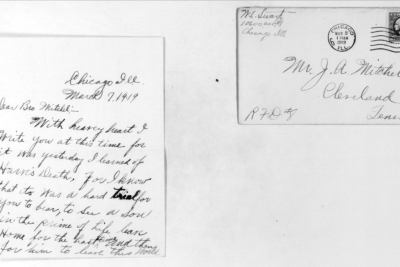 Chicago Ill.
March 7, 1919
Dear Bro Mitchel:-
With heavey heart I
Write you at this time for
it was yesterday I learned of
Harvis Death, For I know
that its was a hard trial for
you to bear, to see a son
in the prime of Life lean
Home for the last and then
for him to leave this World
Chicago Ill
CHICAGO
ILL.
1919
Mr. J. A. Mitchel
Cleveland
Tenn
R F D #8